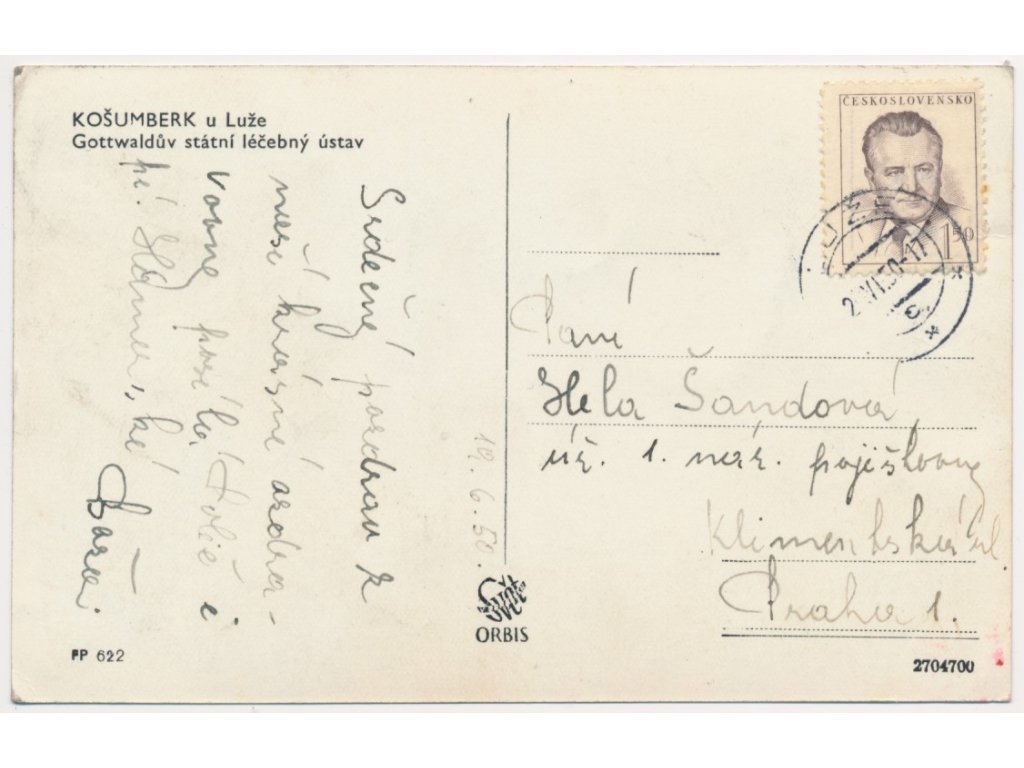 KOŠUMBERK u Luže
Gottwaldův státní léčebný ústav
Srdečné pozdravy z
krásné ozdra-
vovny posílá
i
19.6.50.
SVĚT
ORBIS
FP 622
ČESKOSLOVENSKO
1.50
LUŽE
VI.50-17
Paní
Hela Šandová
úř. 1. nár. pojišťovny
Klimentská ul.
Praha 1.
2704700